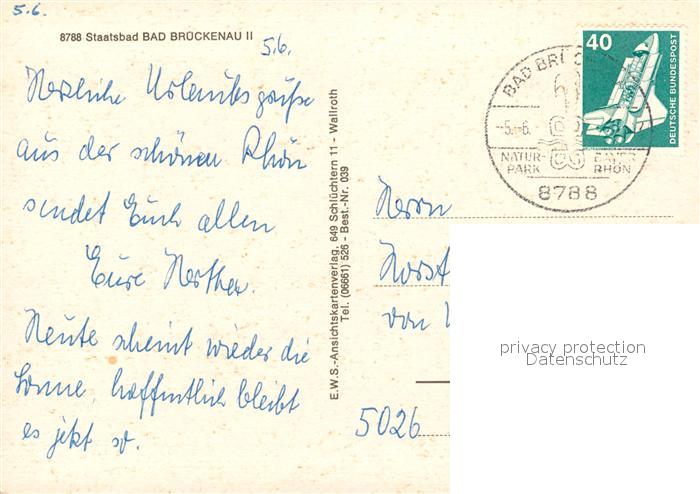 5.6.
8788 Staatsbad BAD BRÜCKENAU II
5.6.
Herzliche Urlaubsgrüße
aus der schönen Rhön
sendet Euch allen
Eure Herthea.
Heute scheint wieder die
Sonne, hoffentlich bleibt
es jetzt so.
E.W.S.-Ansichtskartenverlag, 649 Schlüchtern 11 - Wallroth
Tel. (06661) 526 - Best.-Nr. 039
40
DEUTSCHE BUNDESPOST
BAD BRÜC
-5.-6.
NATUR-
PARK
BAYER.
RHÖN
8788
Herrn
Horst
von
5026
privacy protection
Datenschutz